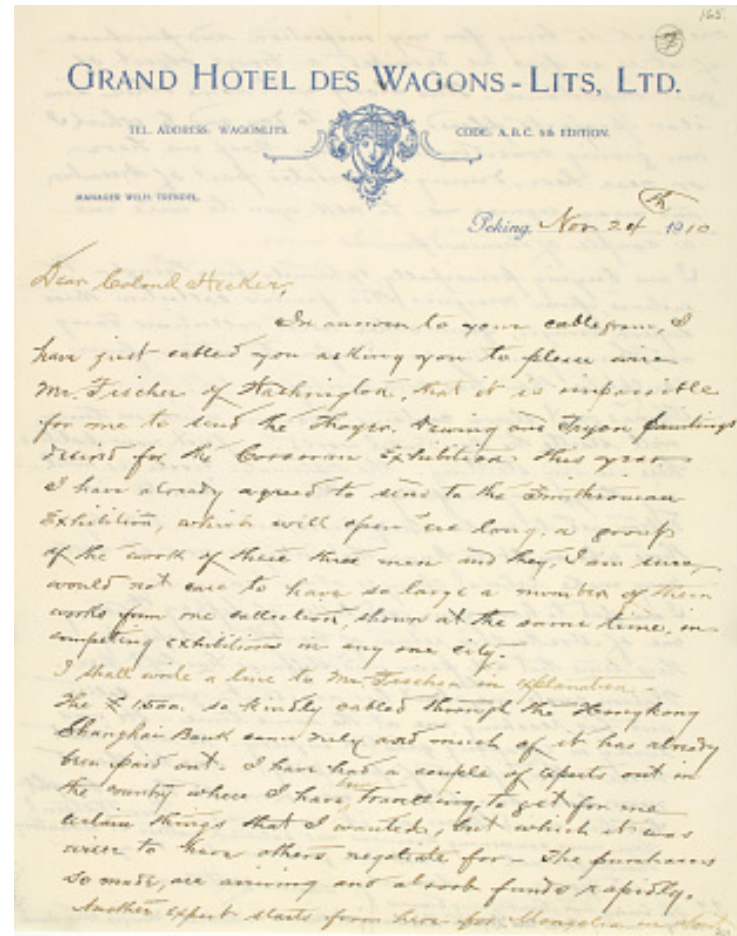 165.
7
GRAND HOTEL DES WAGONS-LITS, LTD.
TEL. ADDRESS: WAGONLITS.
CODE: A.B.C. 5th EDITION.
MANAGER WILH. TRENDEL.
Peking, Nov. 24th 1910.
Dear Colonel Hecker,
In answer to your cablegram, I
have just cabled you asking you to please wire
Mr. Fischer of Washington, that it is impossible
for me to send the Thayer, Dewing and Tryon paintings
desired for the Corcoran Exhibition this year
I have already agreed to send to the Smithsonian
Exhibition, which will open ere long, a group
of the work of these three men and they, I am sure,
would not care to have so large a number of their
works from one collection, shown at the same time, in
competing exhibitions in any one city.
I shall write a line to Mr. Fischer in explanation.
The £1500. so kindly cabled through the Hongkong
Shanghai Bank came duly and much of it has already
been paid out. I have had a couple of experts out in
the country where I have been travelling, to get for me
certain things that I wanted, but which it was
wiser to have others negotiate for – The purchases
so made, are arriving and absorb funds rapidly.
Another expert starts from here for Mongolia in